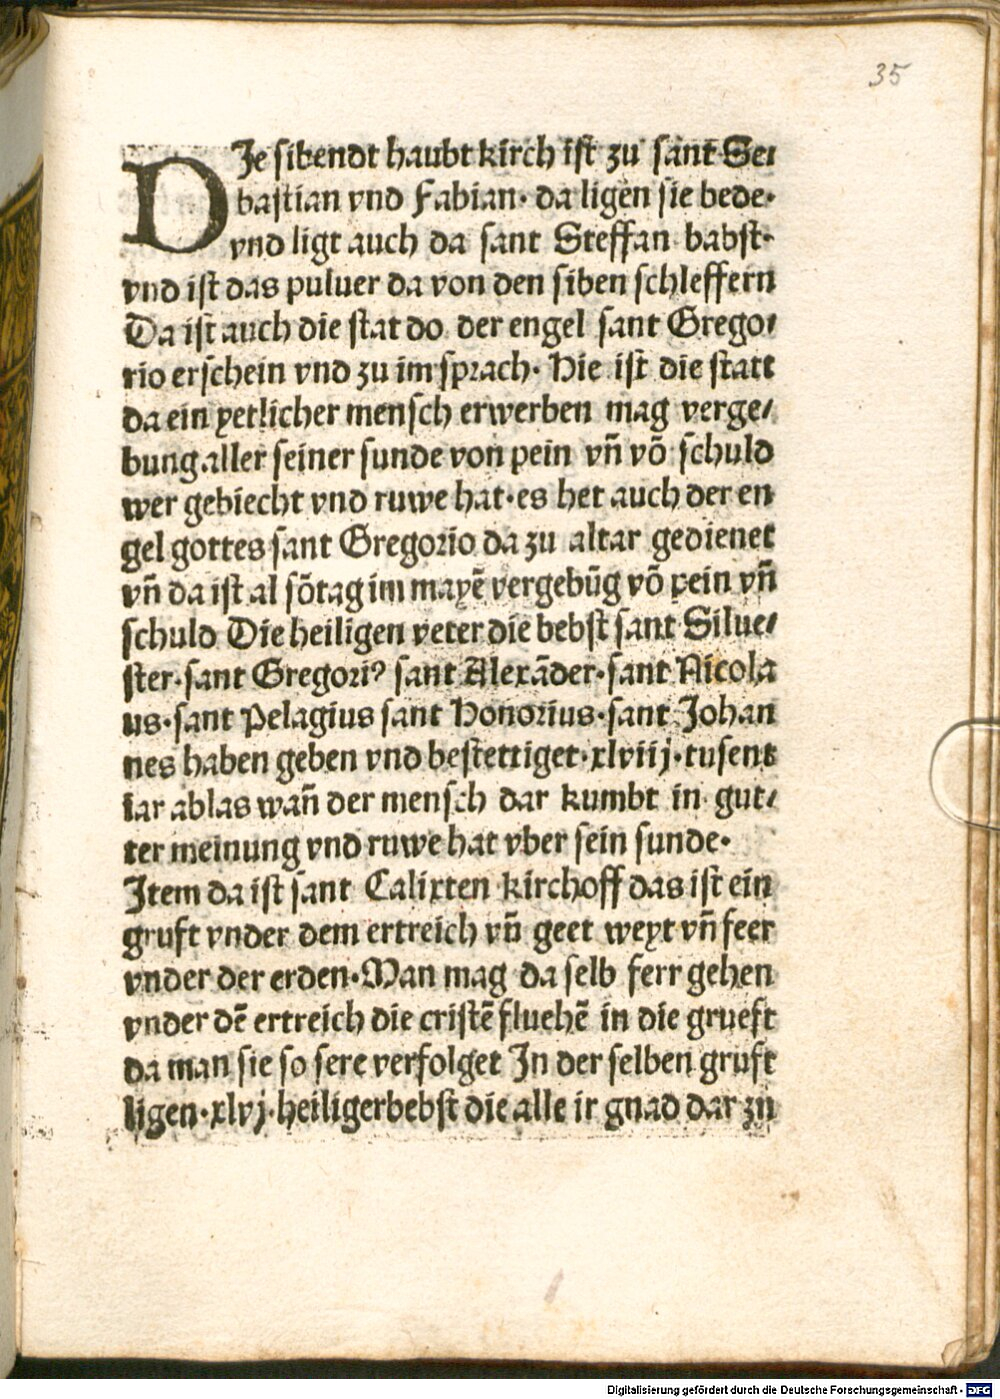 35
DJe sibendt haubt kirch ist zu sant Se⸗
bastian vnd Fabian· da ligen sie bede·
vnd ligt auch da sant Steffan babst·
vnd ist das puluer da von den siben schleffern
Da ist auch die stat do der engel sant Grego⸗
rio erschein vnd zu im sprach· Hie ist die statt
da ein yetlicher mensch erwerben mag verge⸗
bung aller seiner sunde von pein vñ võ schuld
wer gebiecht vnd ruwe hat· es het auch der en
gel gottes sant Gregorio da zu altar gedienet
vñ da ist al sõtag im mayẽ vergebũg võ pein vñ
schuld Die heiligen veter die bebst sant Silue⸗
ster· sant Gregoriꝰ sant Alexãder· sant Nicola
us· sant Pelagius sant Honorius· sant Johan
nes haben geben vnd bestettiget· xlviij· tusent
iar ablas wañ der mensch dar kumbt in gut⸗
ter meinung vnd ruwe hat vber sein sunde·
Item da ist sant Calixten kirchoff das ist ein
gruft vnder dem ertreich vñ geet weyt vñ feer
vnder der erden· Man mag da selb ferr gehen
vnder dẽ ertreich die cristẽ fluehẽ in die grueft
da man sie so sere verfolget In der selben gruft
ligen· xlvj· heiliger bebst die alle ir gnad dar zu
Digitalisierung gefördert durch die Deutsche Forschungsgemeinschaft - DFG